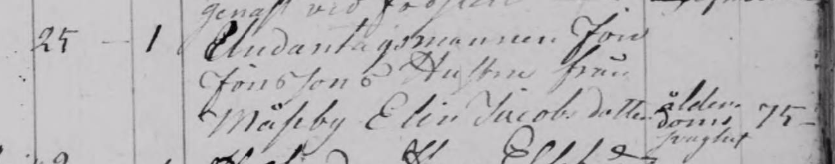 genast vid
25 - 1 Undantagsmannen Jon
Jönssons Hustru från
Måssby Elin Jacobsdotter ålderdoms svaghet 75 -